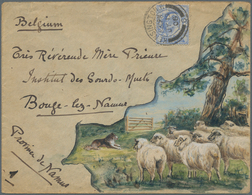 Belgium
Très Révérende Mère Prieure
Institut des Sourds-Muets
Bouge-lez-Namur
Province de Namur